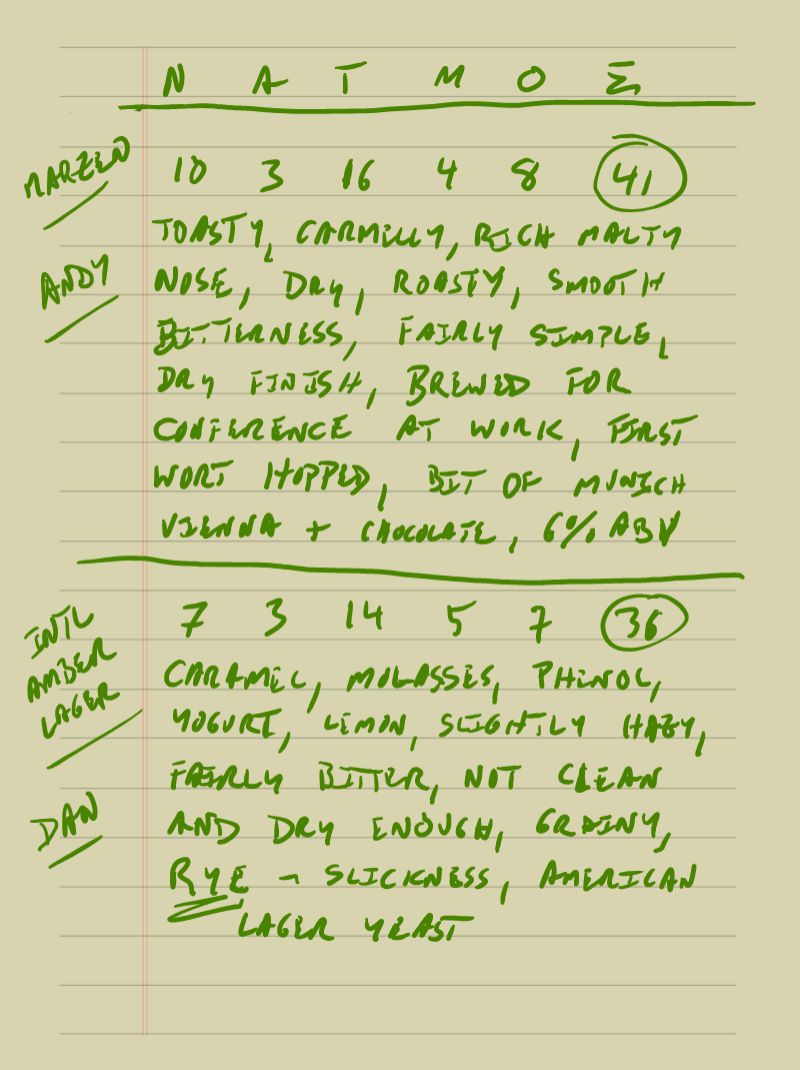 N A T M O Σ
MARZEN
10 3 16 4 8 41
ANDY
TOASTY, CARMELLY, RICH MALTY
NOSE, DRY, ROASTY, SMOOTH
BITTERNESS, FAIRLY SIMPLE,
DRY FINISH, BREWED FOR
CONFERENCE AT WORK, FIRST
WORT HOPPED, BIT OF MUNICH
VIENNA + CHOCOLATE, 6% ABV
INTL
AMBER
LAGER
7 3 14 5 7 36
DAN
CARAMEL, MOLASSES, PHENOL,
YOGURT, LEMON, SLIGHTLY HAZY,
FAIRLY BITTER, NOT CLEAN
AND DRY ENOUGH, GRAINY,
RYE - SLICKNESS, AMERICAN
LAGER YEAST